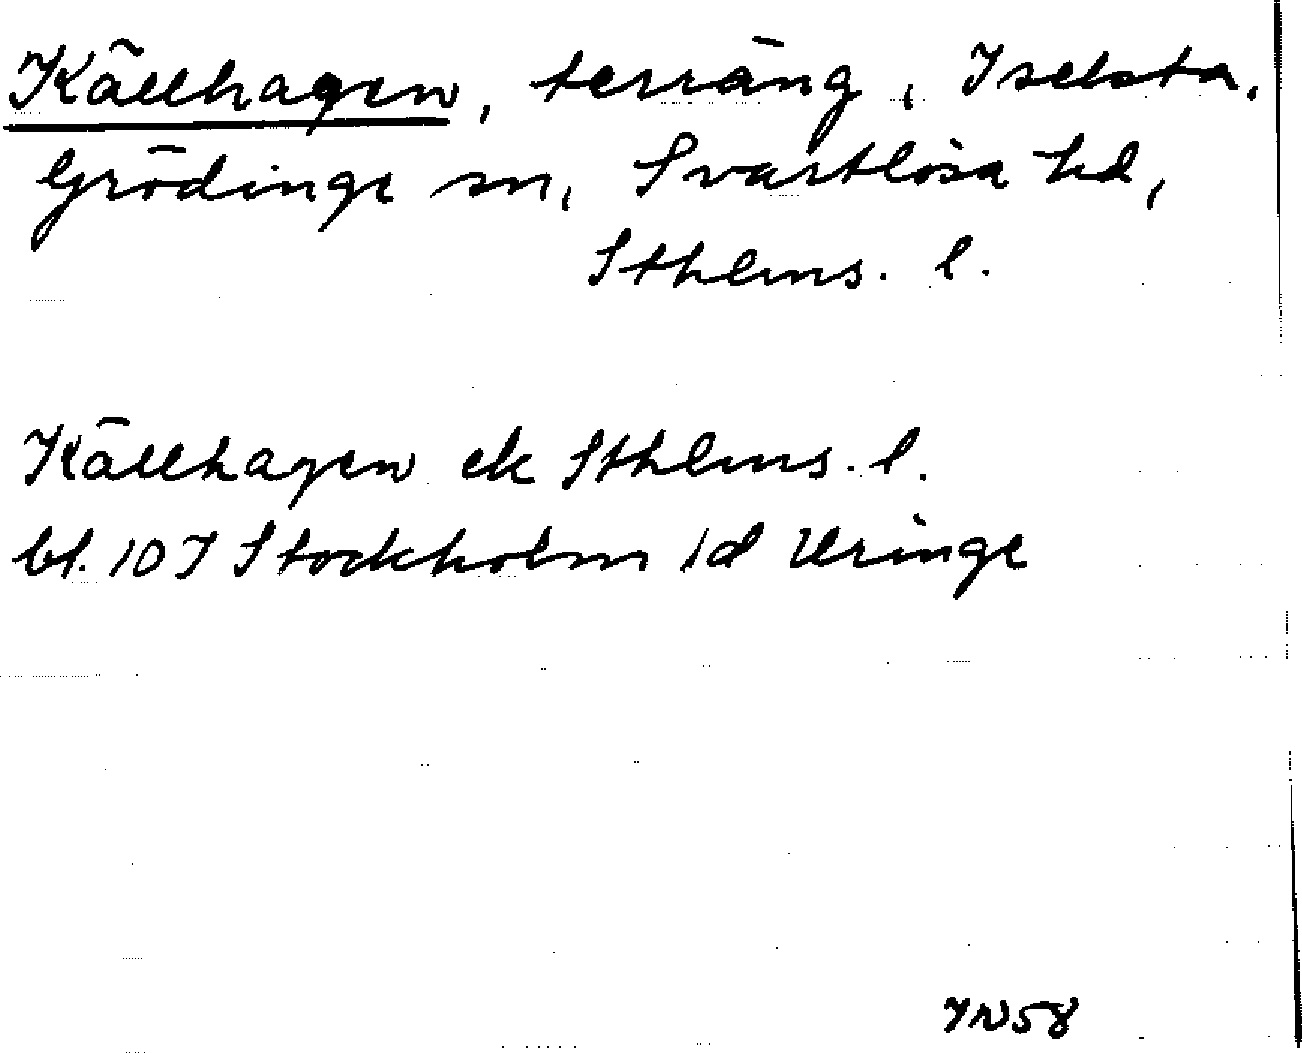 Källhagen, terräng, Iselsta,
Grödinge sn, Svartlösa hd,
Sthlms. l.
Källhagen ek Sthlms. l.
bl. 10I Stockholm 1d Uringe
IN58